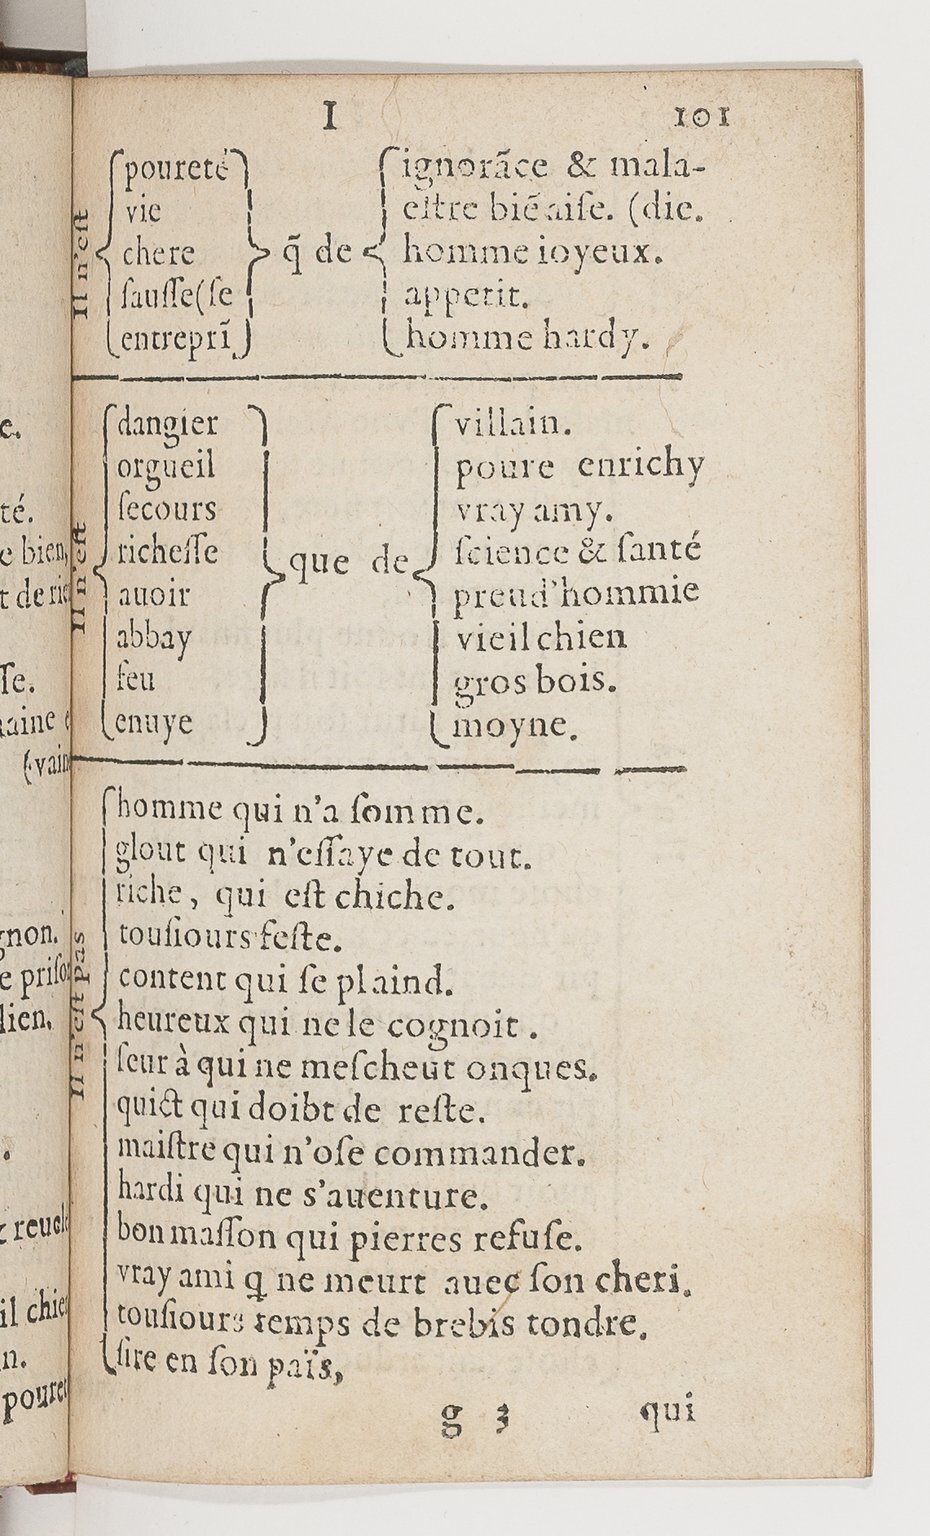 I 101
Il n'eſt
poureté
vie
chere
ſauſſe (ſe
entrepri͂
q̃ de
ignorãce & mala-
eſtre biẽ aiſe. (die.
homme ioyeux.
appetit.
homme hardy.
Il n'eſt
dangier
orgueil
ſecours
richeſſe
auoir
abbay
feu
enuye
que de
villain.
poure enrichy
vray amy.
ſcience & ſanté
preud'hommie
vieil chien
gros bois.
moyne.
Il n'eſt pas
homme qui n'a ſomme.
glout qui n'eſſaye de tout.
riche, qui eſt chiche.
touſiours feſte.
content qui ſe plaind.
heureux qui ne le cognoit.
ſeur à qui ne meſcheut onques.
quict qui doibt de reſte.
maiſtre qui n'oſe commander.
hardi qui ne s'auenture.
bon maſſon qui pierres refuſe.
vray ami ꝗ ne meurt auec ſon cheri.
touſiours temps de brebis tondre.
ſire en ſon païs,
g 3 qui
e.
té.
e bien,
t de rie
ſſe.
aine
(vain
gnon.
e priſo
lien.
.
reuel
il chie
n.
pouret